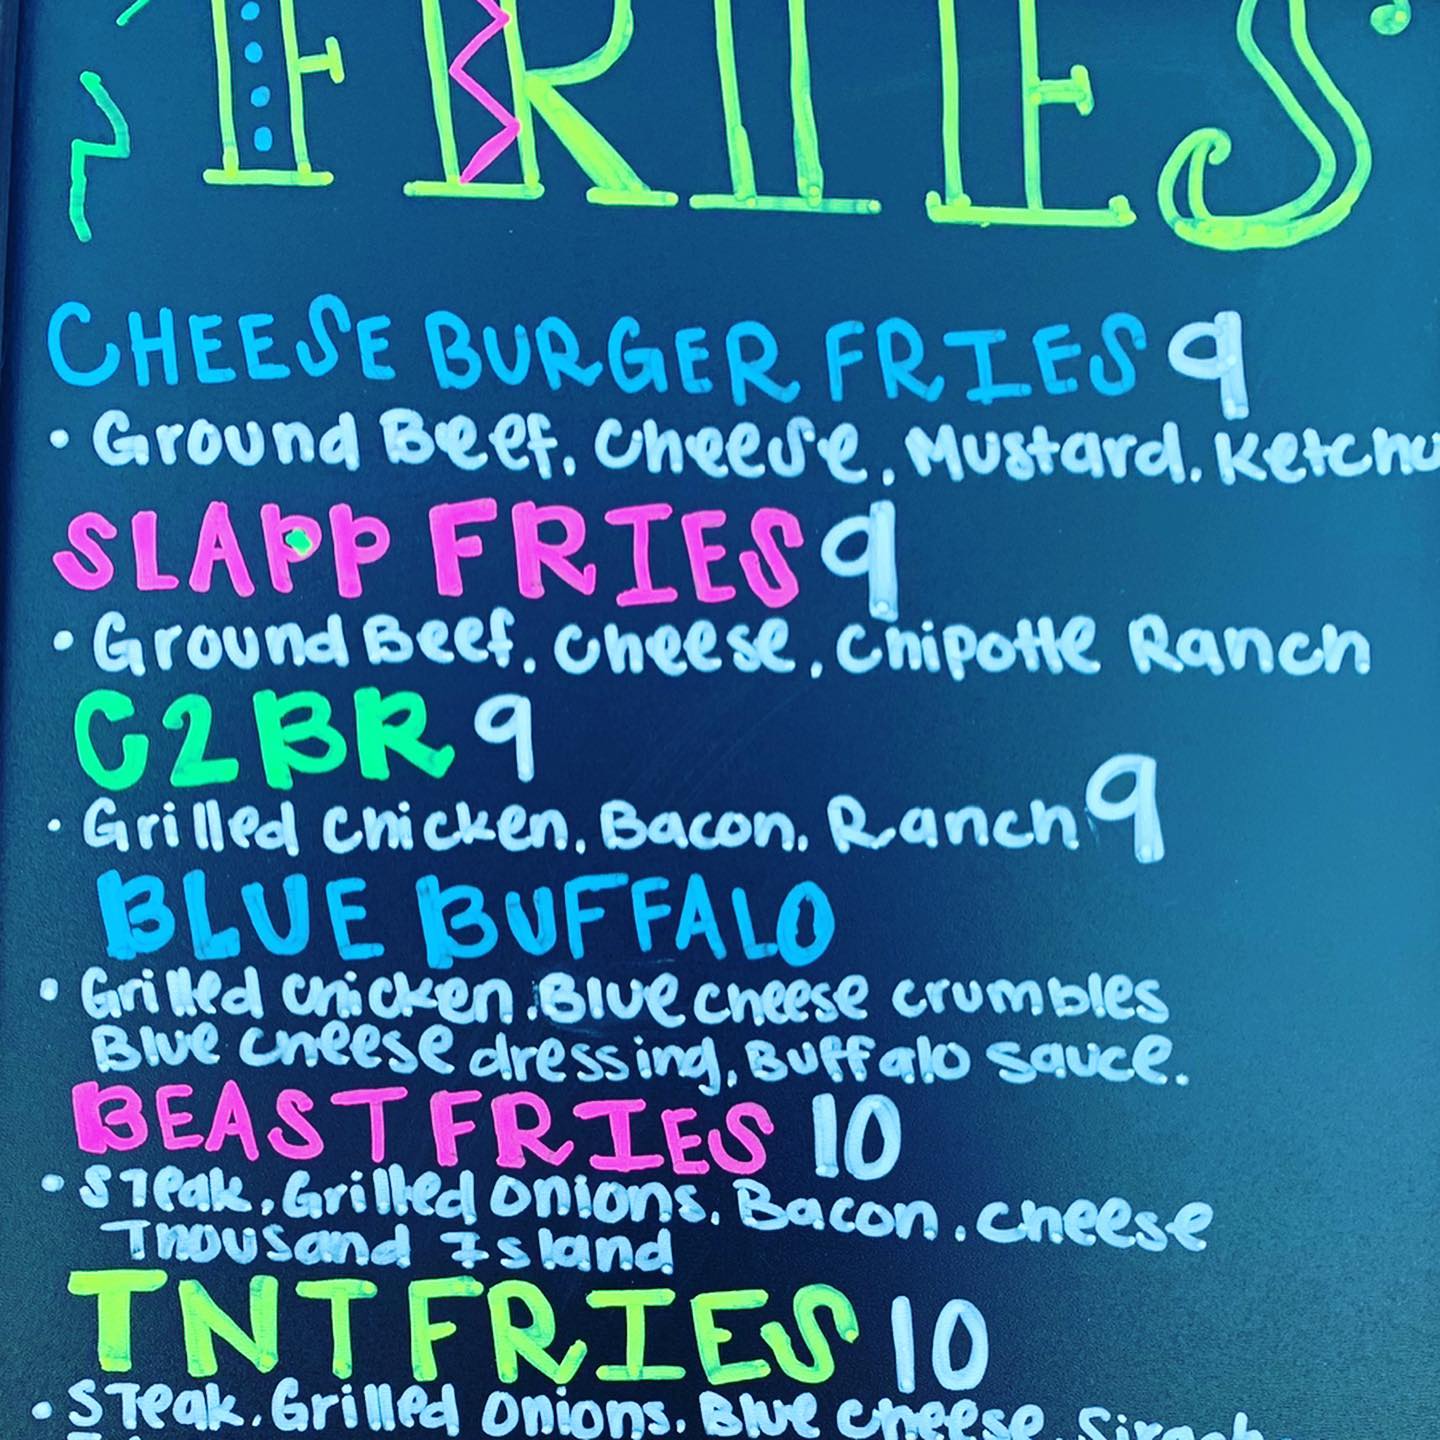 FRIES
CHEESE BURGER FRIES 9
• Ground Beef, Cheese, Mustard, Ketchu
SLAPP FRIES 9
• Ground Beef, Cheese, Chipotle Ranch
C2BR 9
• Grilled Chicken, Bacon, Ranch 9
BLUE BUFFALO
• Grilled Chicken, Blue Cheese crumbles
Blue Cheese dressing, Buffalo sauce.
BEAST FRIES 10
• Steak, Grilled Onions, Bacon, Cheese
Thousand Island
TNT FRIES 10
• Steak, Grilled Onions, Blue Cheese,